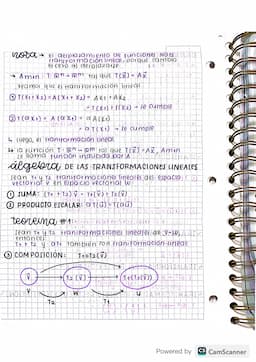 nota → el desplazamiento de funciones no es
transformación lineal, porque cambio
el cero al desplazarse.
→ A m×n T: ℝⁿ → ℝᵐ tal que T(x̄) = Ax̄
① T(x̄1 + x̄2) = A(x̄1 + x̄2) = Ax̄1 + Ax̄2
= T(x̄1) + T(x̄2) → se cumple
② T(αx̄1) = A(αx̄1) = αA(x̄1)
= αT(x̄1) → se cumple
↳ luego, es transformación lineal
↳ la función T: ℝⁿ → ℝᵐ tal que T(x̄) = Ax̄, Amxn
se llama función inducida por A
álgebra DE LAS TRANSFORMACIONES LINEALES
Sean T1 y T2 transformaciones lineales del espacio
vectorial V en espacio vectorial W
① SUMA: (T1 + T2)v̄ = T1(v̄) + T2(v̄)
② PRODUCTO ESCALAR: αT(v̄) = T(αv̄)
teorema #1:
Sean T1 y T2 transformaciones lineales de V→W,
entonces
T1 + T2 y αT1 también son transformación lineal
③ COMPOSICIÓN: T1∘T2(v̄)
v̄ T2(v̄) T1(T2(v̄))
V W U
T2 T1
Powered by CS CamScanner